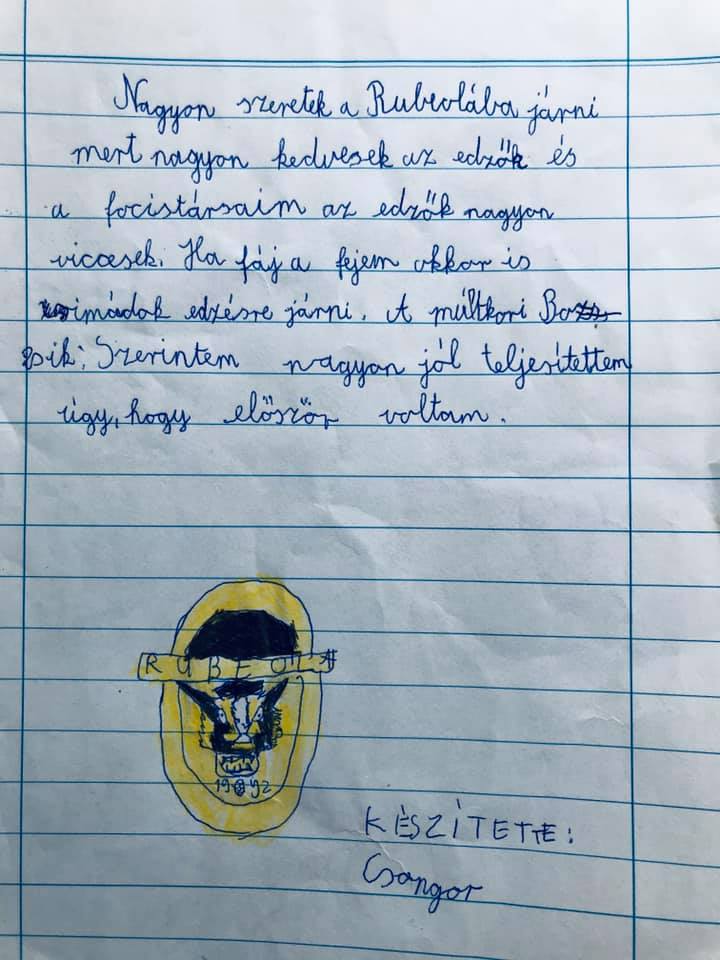 Nagyon szeretek a Rubeolába járni
mert nagyon kedvesek az edzők és
a focistársaim az edzők nagyon
viccesek. Ha fáj a fejem akkor is
imádok edzésre járni. A múltkori Bo
zsik: Szerintem nagyon jól teljesítettem
úgy, hogy előszőr voltam.
RUBEOLA
1992
KÉSZÍTETTE:
Csongor